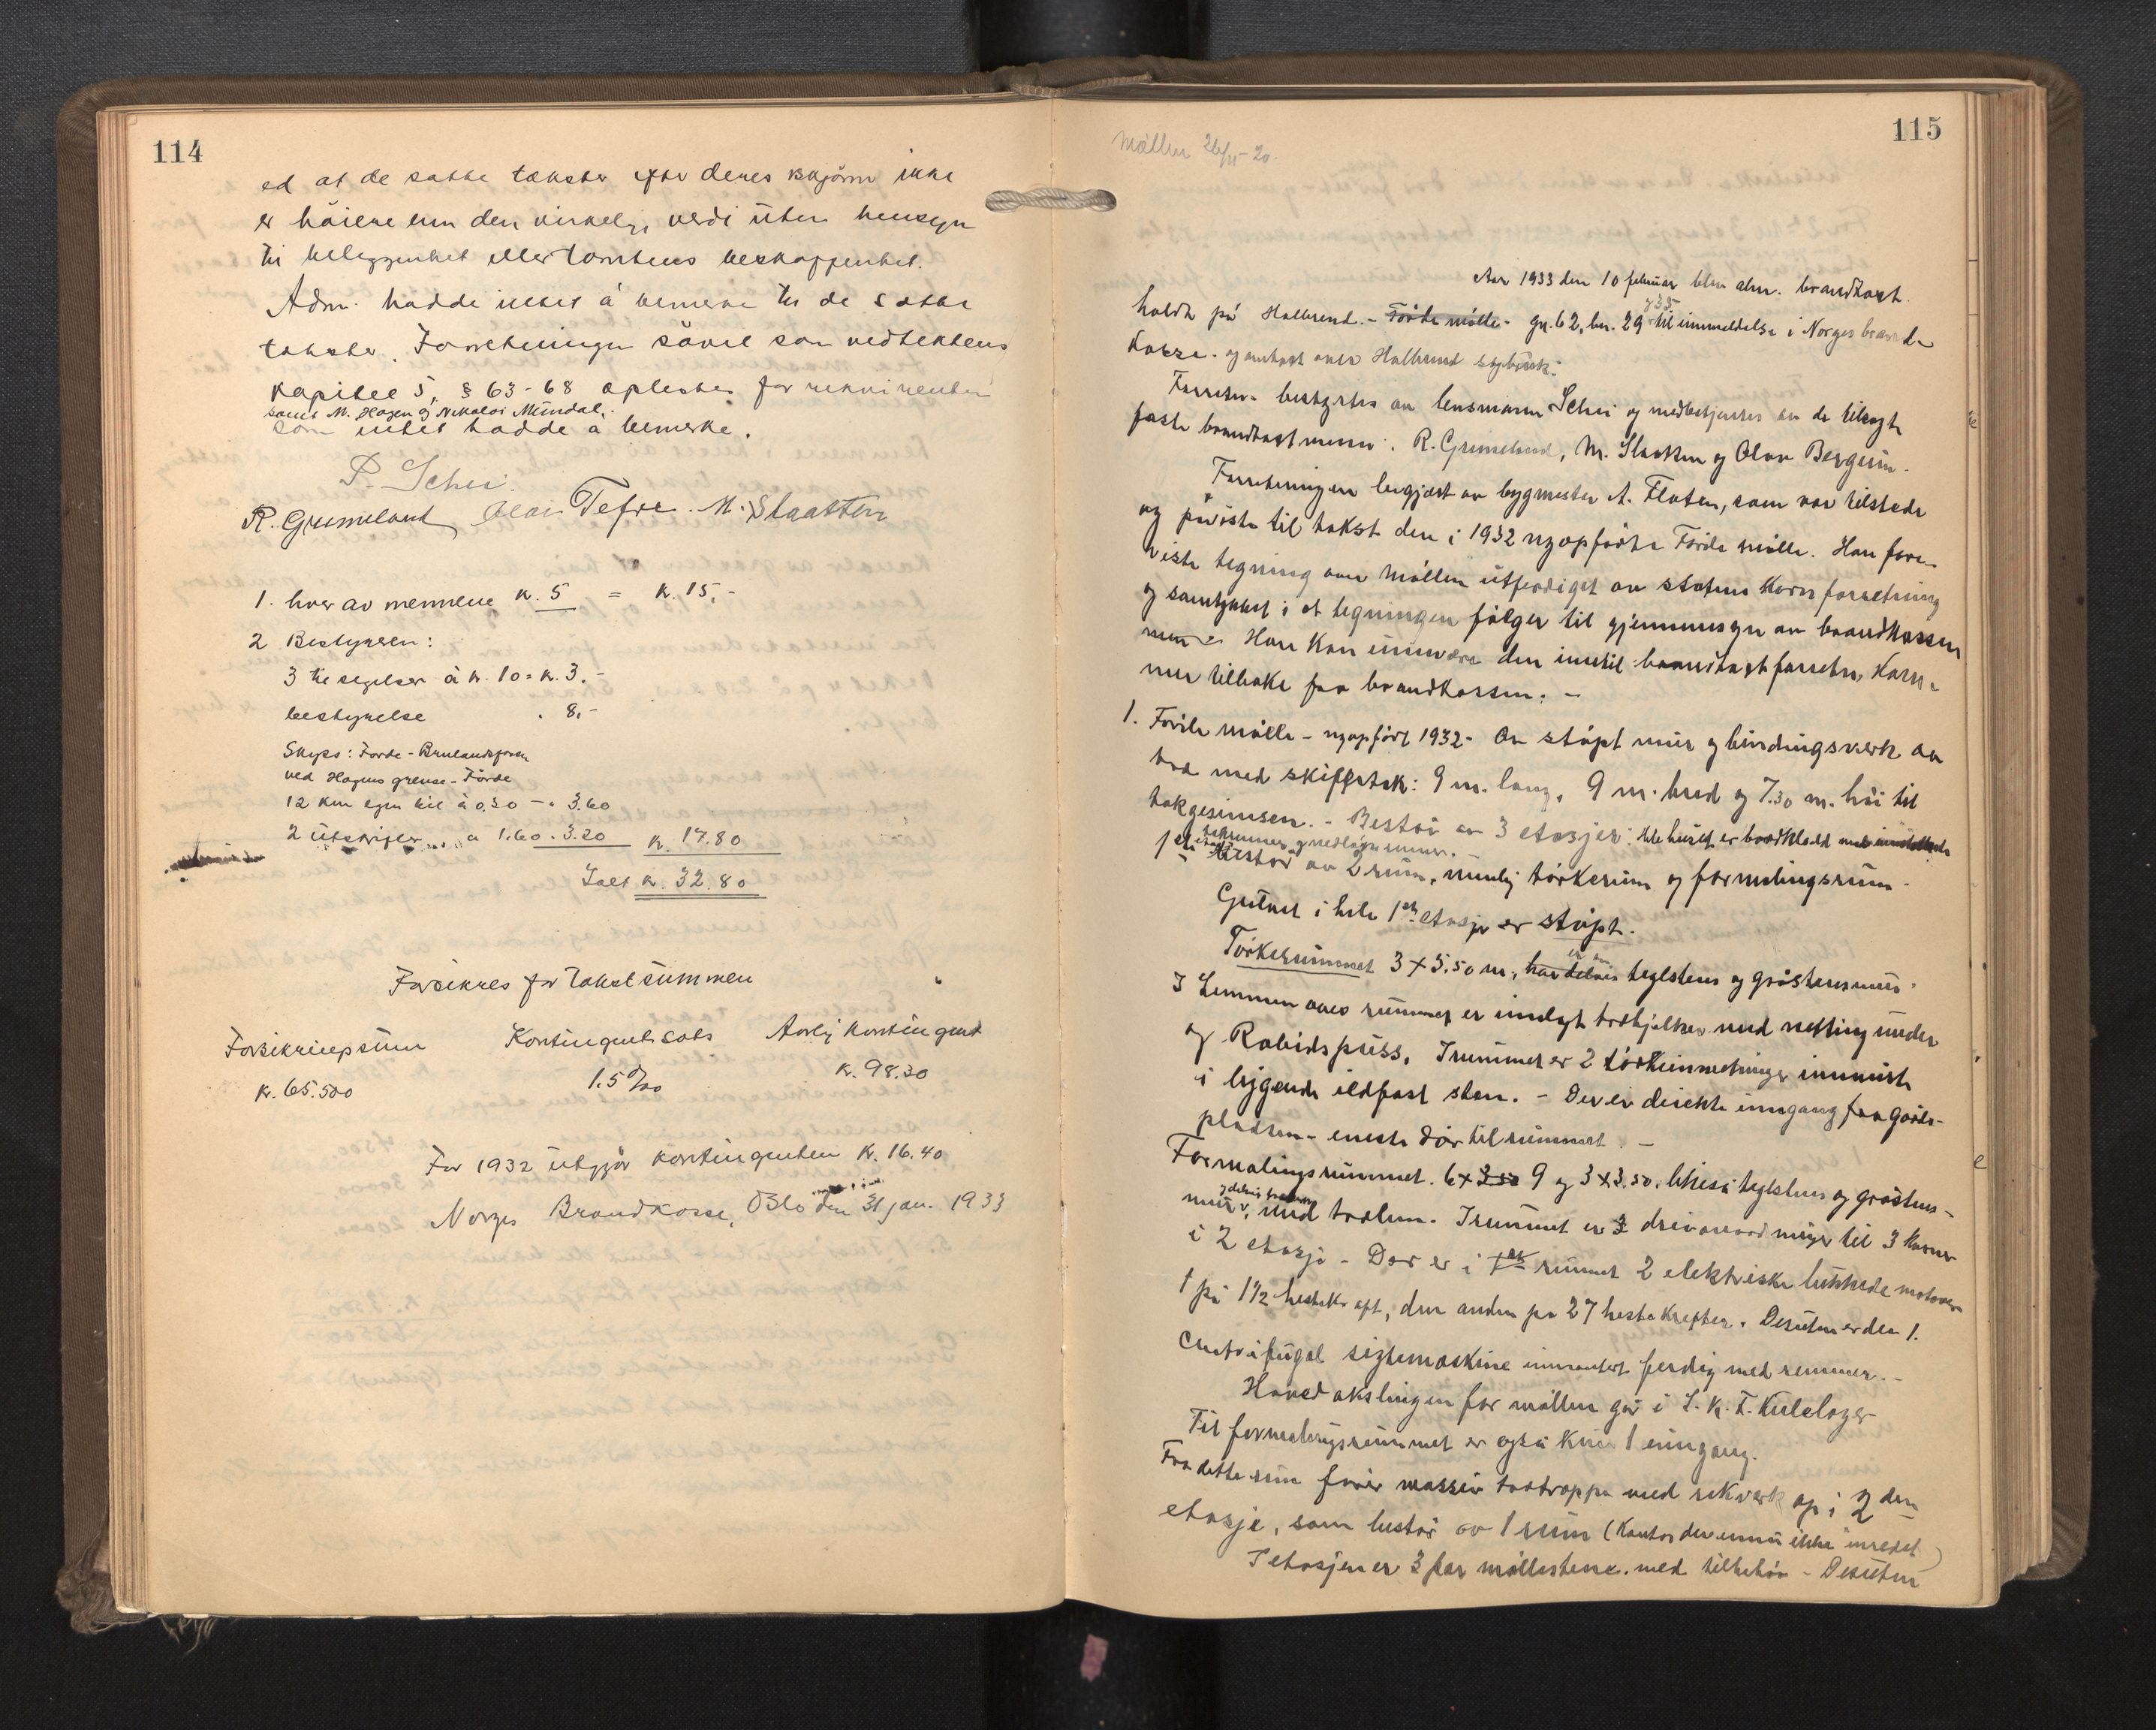 114
ed at de satte takster efter deres skjönn ikke
er höiere enn den virkelige verdi uten hensyn
til beleggenhet eller tomtens beskaffenhet.
Adm. hadde intet å bemerke til de satte
takster. Forretningen såvel som vedtektens
kapitel 5, § 63-68 oplestes for rekvirenten
samt M. Hagen og Nikolai Mündal,
som intet hadde å bemerke.
P. Schei.
R. Grimeland Olai Tefre. M. Slaatten
1. hver av mennene kr. 5 = kr. 15,-
2 Bestyreren:
3 tilsigelser à kr. 1.0 = kr. 3.-
bestyrelse . 8,-
Skyss: Förde - Brulandsfossen
ved Hagens grense - Förde
12 km egen bil à 0,30 - " 3.60
2 utskrifter à 1.60 . 3.20 kr. 17.80
Ialt kr. 32.80
Forsikres for Takstsummen
Forsikringssum Kontingentsats Aarlig kontingent
kr. 65.500 1.5 0/00 kr. 98.30
For 1932 utgjör kontingenten kr. 16.40
Norges Brandkasse, Oslo den 31 jan. 1933
115
Möllen 26/11-20.
Aar 1933 den 10 februar blev alm. brandtakst
holdt på Halbrend. - Förde mölle - gn. 62, bn. 29 og 35 til innmeldelse i Norges brannde
kasse. og omtakst over Halbrend sagbruk:
Forretn. bestyrtes av lensmann Schei og medbetjentes av de tilsagte
faste brandtakstmenn: R. Grimeland, M. Slaatten og Olav Bergum.
Forretningen begjært av bygmester A. Flaten, som var tilstede
og påviste til takst den i 1932 nyopförte Förde mölle. Han fore-
viste tegning over Möllen utferdiget av statens Kornforretning
og samtykket i at tegningen fölger til gjennemsyn av brandkassen
men Han kan undvære den inntil brandtakstforretn. kom-
mer tilbake fra brandkassen. -
1. Förde mölle - nyopfört 1932 - Av stöpt mur og bindingsverk av
tre med skiffertak: 9 m. lang, 9 m. bred og 7.30 m. höi til
takgesimsen. - Består av 3 etasjer: Hele huset er bordklædd
1ste etasje består av 2 rum, nemlig törkerum og formalingsrum.
Gulvet i hele 1ste etasje er stöpt.
Törkerummet 3 x 5.50 m, har delvis er av teglstens og gråstensmur.
I Lemmen over rummet er innlagt trebjelker med netting under
og Rabidspuss. I rummet er 2 törkeinnretninger innmurte
i liggende ildfast sten. - Der er direkte inngang fra gårds-
pladsen - eneste dör til rummet. -
Formalingsrummet. 6 x 3.50 9 og 3 x 3.50. likeså teglstens og gråstens-
mur, og delvis med trelem. I rummet er 3 drivanordninger til 3 kverner
i 2 etasje - Der er i 1ste rummet 2 elektriske lukkede motorer
1 på 1 1/2 hestekraft, den anden på 27 hestekrefter. Desuten er der 1.
Centrifugal sigtemaskine innmontert ferdig med remmer. -
Hovedakslingen for möllen går i S. K. F. Kulelager
Til formalingsrummet er også kun 1 inngang.
Fra dette rum förer massiv tretrappe med rekverk op i 2den
etasje, som består av 1 rum (Kontor der ennu ikke inredet)
I etasjen er 3 par möllestene med tilbehör - Desuten